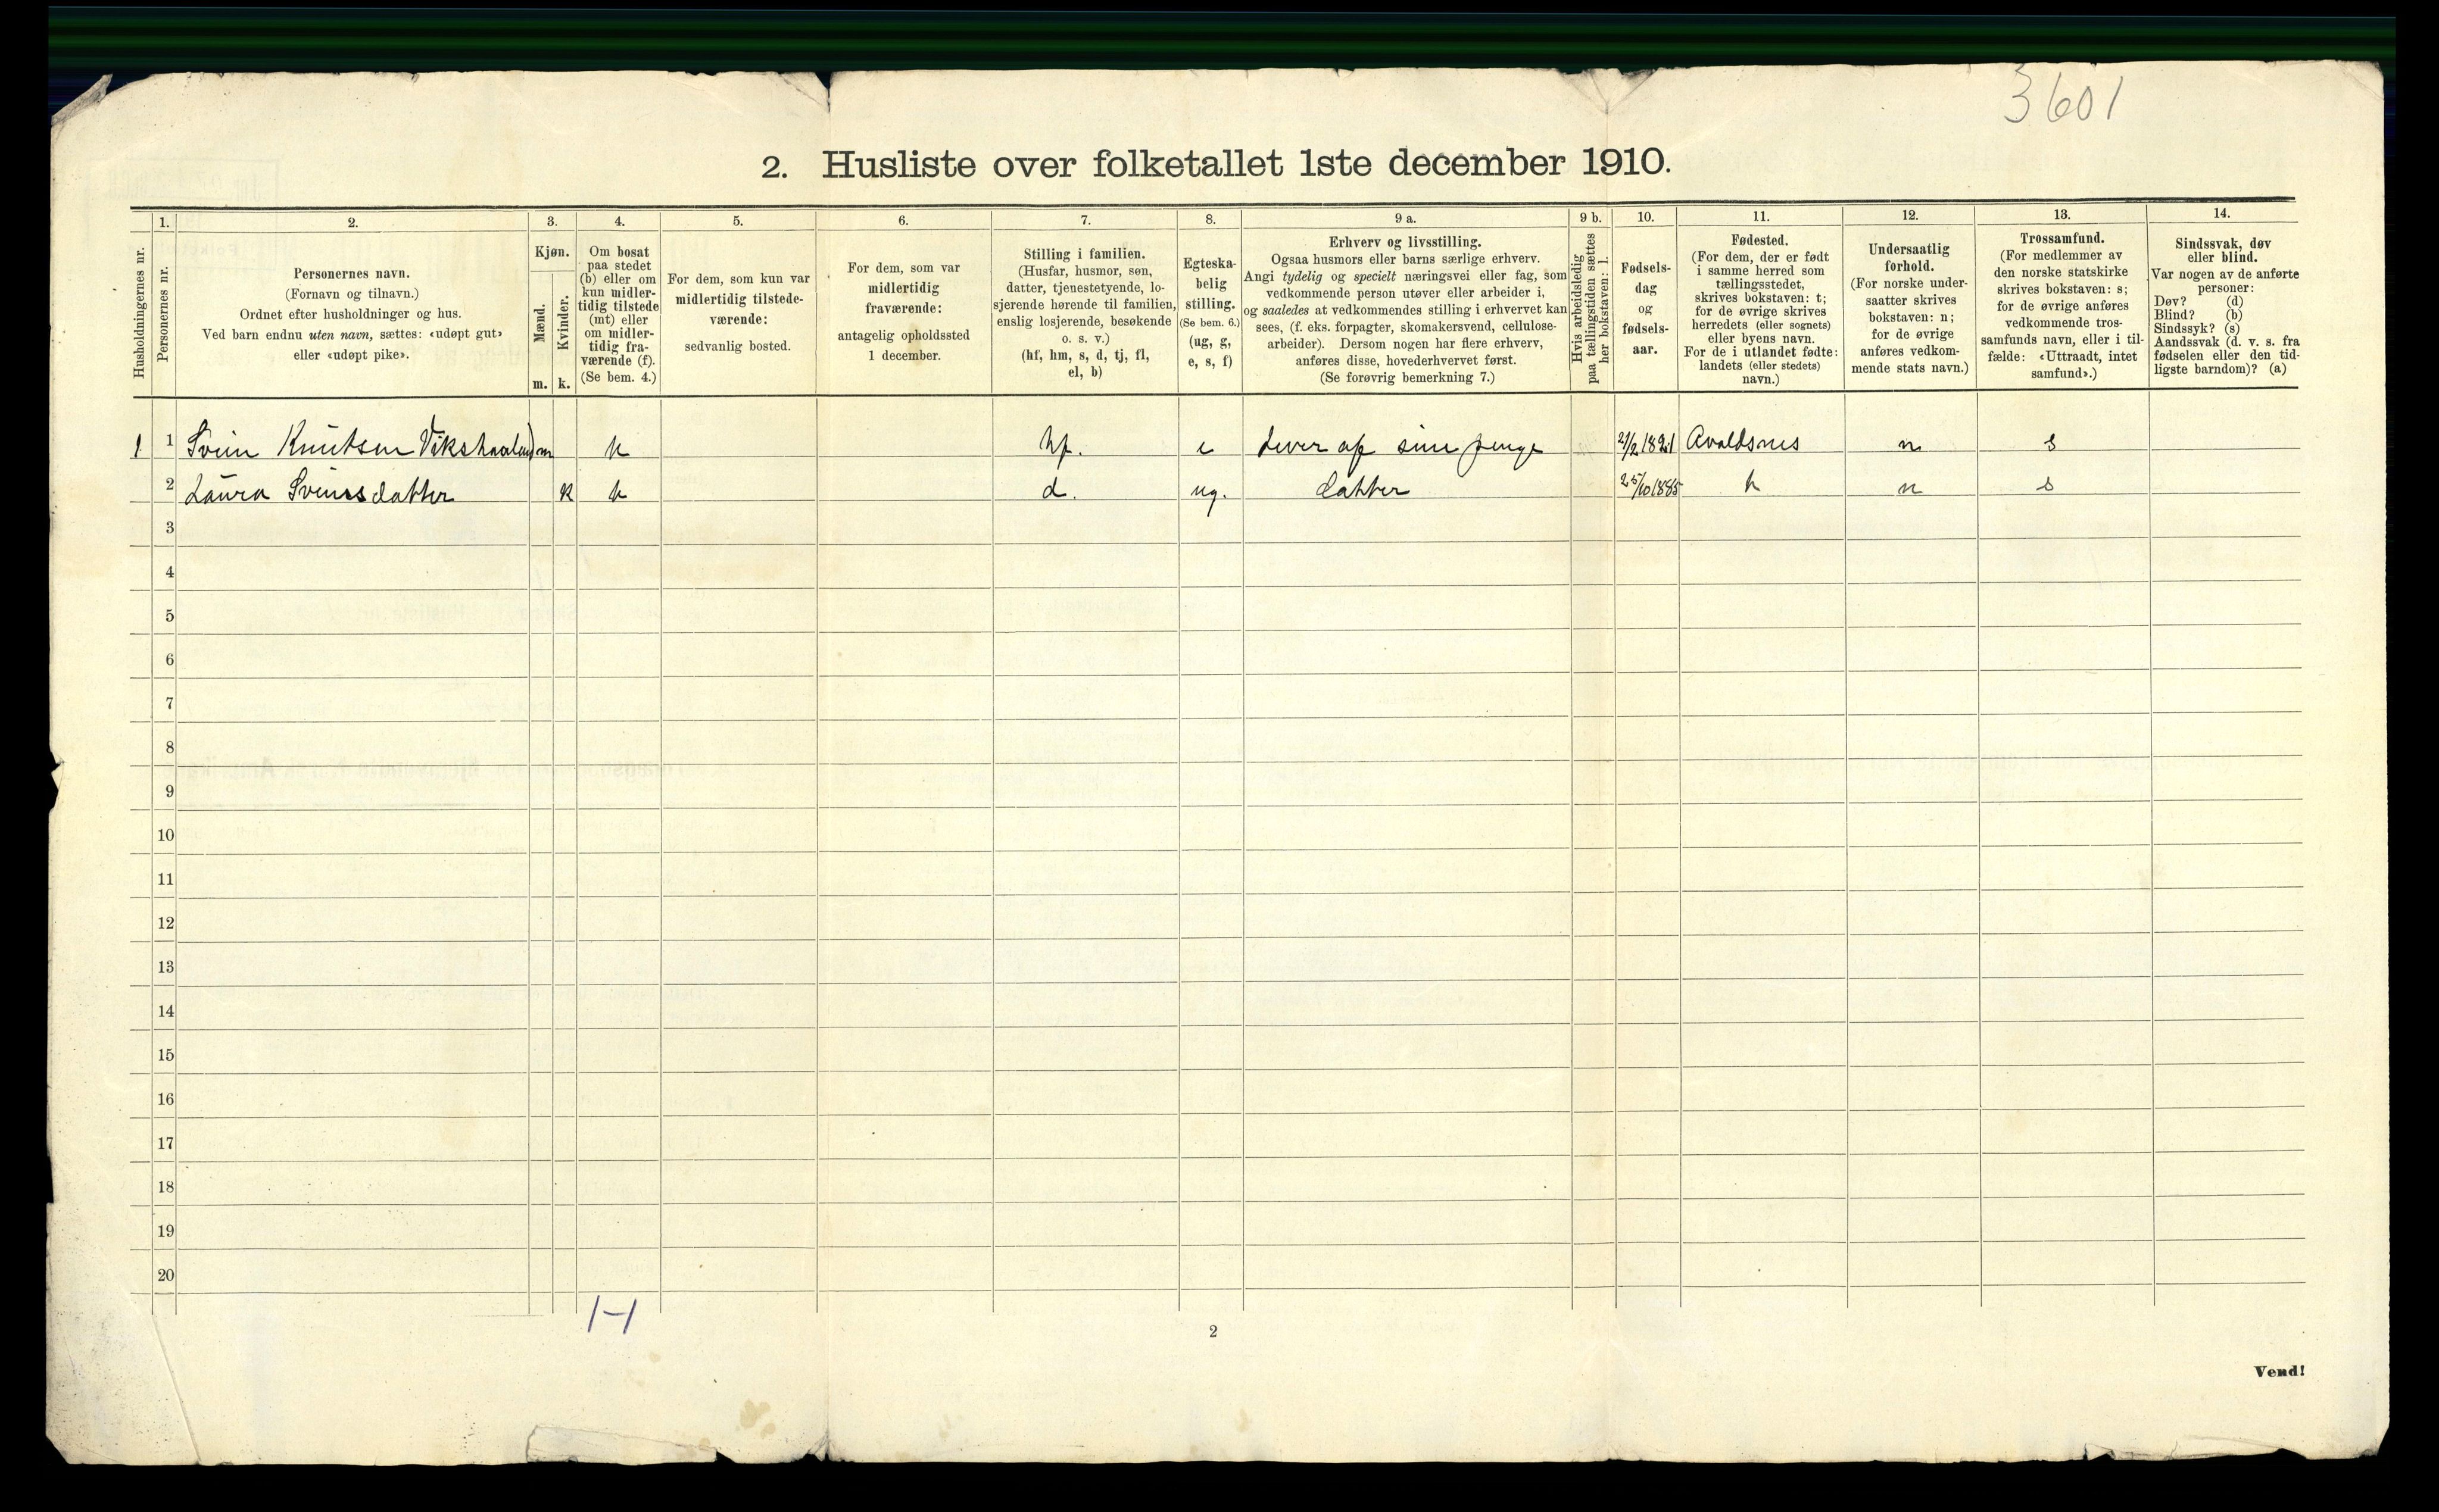 3601
2. Husliste over folketallet 1ste december 1910.
Husholdningernes nr.
1.
Personernes nr.
2.
Personernes navn.
(Fornavn og tilnavn.)
Ordnet efter husholdninger og hus.
Ved barn endnu uten navn, sættes: «udøpt gut»
eller «udøpt pike».
3.
Kjøn.
Mænd.
Kvinder.
m. k.
4.
Om bosat
paa stedet
(b) eller om
kun midler-
tidig tilstede
(mt) eller
om midler-
tidig fra-
værende (f).
(Se bem. 4.)
5.
For dem, som kun var
midlertidig tilstede-
værende:
sedvanlig bosted.
6.
For dem, som var
midlertidig
fraværende:
antagelig opholdssted
1 december.
7.
Stilling i familien.
(Husfar, husmor, søn,
datter, tjenestetyende, lo-
sjerende hørende til familien,
enslig losjerende, besøkende
o. s. v.)
(hf, hm, s, d, tj, fl,
el, b)
8.
Egteska-
belig
stilling.
(Se bem. 6.)
(ug, g,
e, s, f)
9 a.
Erhverv og livsstilling.
Ogsaa husmors eller barns særlige erhverv.
Angi tydelig og specielt næringsvei eller fag, som
vedkommende person utøver eller arbeider i,
og saaledes at vedkommendes stilling i erhvervet kan
sees, (f. eks. forpagter, skomakersvend, cellulose-
arbeider). Dersom nogen har flere erhverv,
anføres disse, hovederhvervet først.
(Se forøvrig bemerkning 7.)
9 b.
Hvis arbeidsledig
paa tællingstiden sættes
her bokstaven: l.
10.
Fødsels-
dag
og
fødsels-
aar.
11.
Fødested.
(For dem, der er født
i samme herred som
tællingsstedet,
skrives bokstaven: t;
for de øvrige skrives
herredets (eller sognets)
eller byens navn.
For de i utlandet fødte:
landets (eller stedets)
navn.)
12.
Undersaatlig
forhold.
(For norske under-
saatter skrives
bokstaven: n;
for de øvrige
anføres vedkom-
mende stats navn.)
13.
Trossamfund.
(For medlemmer av
den norske statskirke
skrives bokstaven: s;
for de øvrige anføres
vedkommende tros-
samfunds navn, eller i til-
fælde: «Uttraadt, intet
samfund».)
14.
Sindssvak, døv
eller blind.
Var nogen av de anførte
personer:
Døv? (d)
Blind? (b)
Sindssyk? (s)
Aandssvak (d. v. s. fra
fødselen eller den tid-
ligste barndom)? (a)
1 1 Svein Knutsen Vikshaaland m hf. e Lever af sine penge Avaldsnes n s
2 Laura Sveinsdatter k d. ug. datter 25/10 1885 n s
3
4
5
6
7
8
9
10
11
12
13
14
15
16
17
18
19
20
1-1
2
Vend!